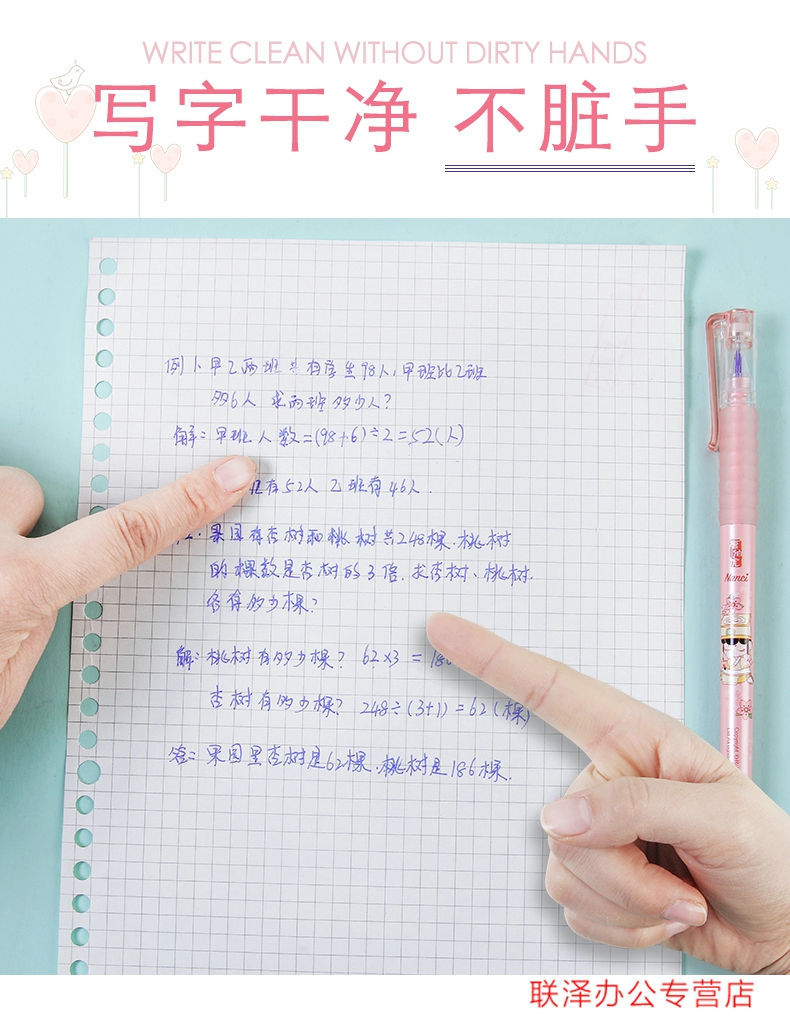 WRITE CLEAN WITHOUT DIRTY HANDS
写字干净 不脏手
例1、甲乙两班共有学生98人，甲班比乙班
多6人 求两班多少人？
解：甲班人数=(98+6)÷2=52(人)
有52人 乙班有46人.
果园有杏树和桃树共248棵.桃树
的棵数是杏树的3倍.求杏树、桃树.
各有多少棵？
解：桃树有多少棵？ 62×3 = 18
杏树有多少棵？ 248÷(3+1)=62(棵)
答：果园里杏树是62棵.桃树是186棵.
Nanci
联泽办公专营店